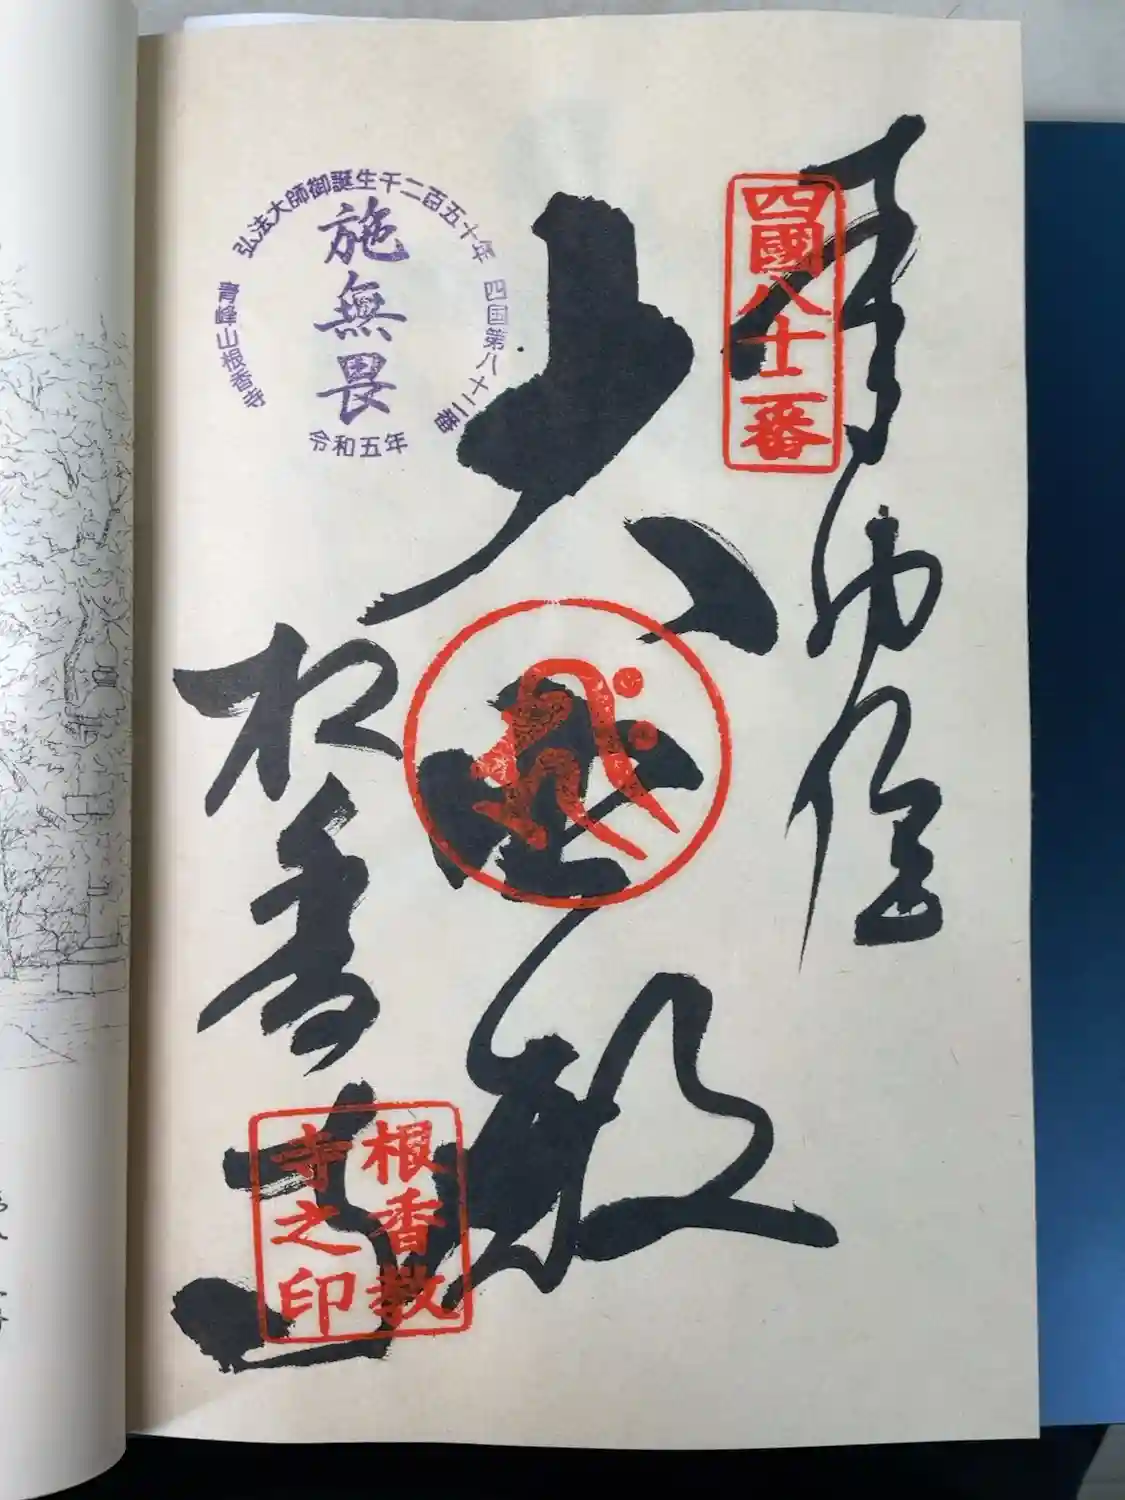 奉納経
四國八十二番
大悲殿
弘法大師御誕生千二百五十年
四国第八十二番
青峰山根香寺
施無畏
令和五年
根香寺
根香教
寺之印